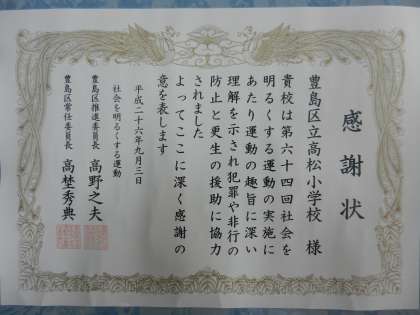 感謝状
豊島区立高松小学校 様
貴校は第六十四回社会を
明るくする運動の実施に
あたり運動の趣旨に深い
理解を示され犯罪や非行の
防止と更生の援助に協力
されました
よってここに深く感謝の
意を表します
平成二十六年九月三日
社会を明るくする運動
豊島区推進委員長 高野之夫
豊島区常任委員長 高埜秀典